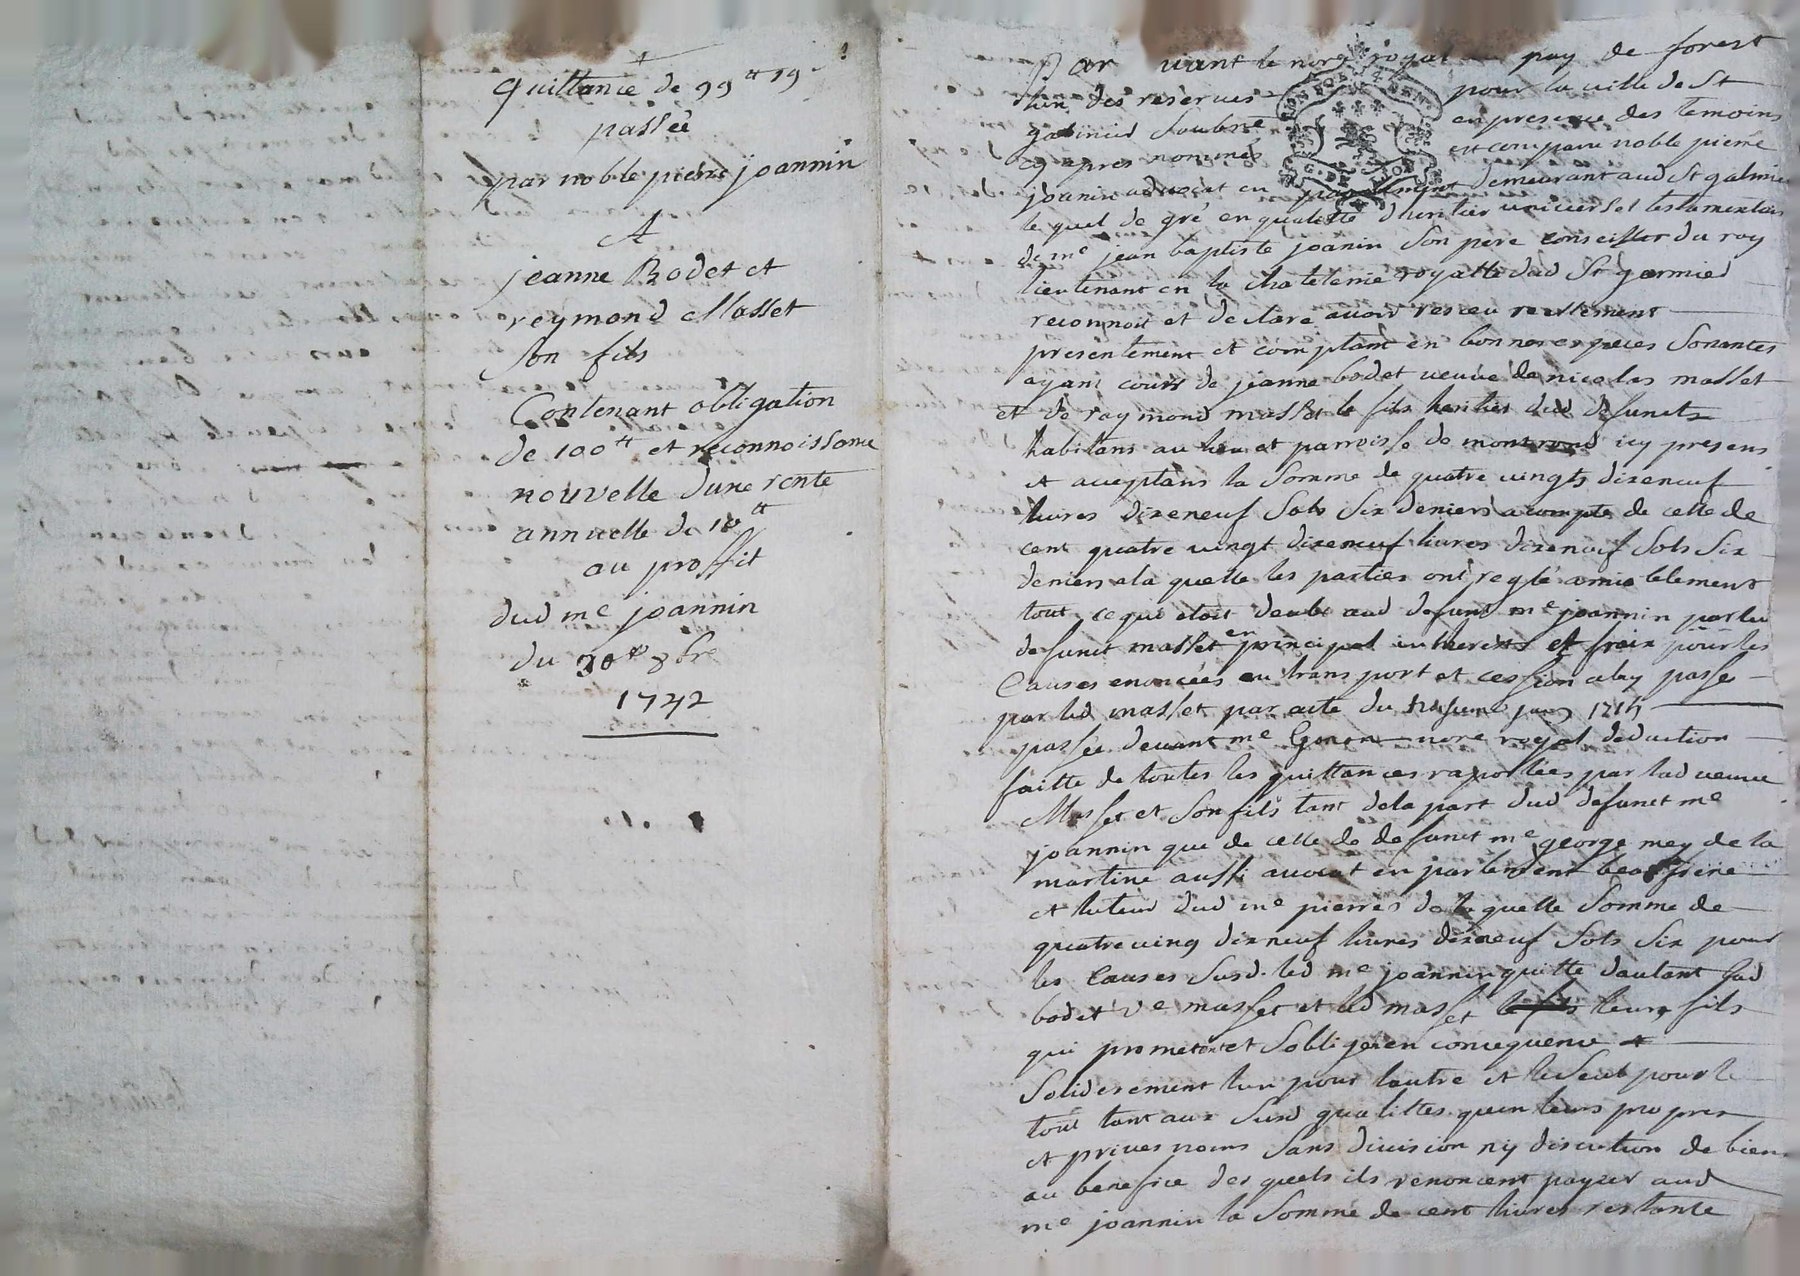 Quittance de 99tt 19
passée
par noble pierre joannin
A
jeanne Bodet et
reymond Masset
son fils
Contenant obligation
de 100tt et reconnoissance
nouvelle dune rente
annuelle de 10tt
au proffit
dud me joannin
du 30e 8bre
1742
Par vant le nore royal pay de forest
lun des reservés pour la ville de St
galmier Soubne en presence des temoins
cy apres nommés est comparu noble pierre
joanin advocat en parlement demeurant aud St galmier
le quel de gré en qualitté dheritier universel testamentaire
de me jean baptiste joanin Son pere conseiller du roy
lieutenant en la chatelenie royalle dud St garmier
reconnoit et declare avoir receu reellement
presentement et comptant en bonnes especes Sonantes
ayant cours de jeanne bodet veuve de nicolas masset
et de raymond masset le fils heritier dud defunct
habitans au lieu et parroisse de montrond icy presens
et acceptans la Somme de quatre vingts dixeneuf
livres dixeneuf Sols Six deniers acompte de celle de
cent quatre vingt dixeneuf livres dixeneuf Sols Six
deniers ala quelle les parties ont reglé amiablement
tout ce qui etoit deub aud defunt me joannin par led
defunct masset en principal intherets et fraix pour les
Causes enoncées au transport et cession aluy passé
par led masset par acte du janv
passée devant me nore royal deduction
faitte de toutes les quittances raportées par lad veuve
Masset et Son fils tant dela part dud defunct me
joannin que de celle de defunct me george mey de la
martine aussi avocat en parlement beaufrere
et tuteur dud me pierre de la quelle Somme de
quatre ving dixneuf livres dixneuf Sols Six pour
les Causes Susd. led me joannin quitte dautant lad
bodet ve masset et led masset le fils leur fils
qui prometent et Sobligeren consequence
Soliderement lun pour lautre et le Seul pour le
tout tant aux Susd qualittes quen leurs propres
et privés noms Sans division ny discution de biens
au benefice des quels ils renoncent payer aud
me joannin la Somme de cent livres restante